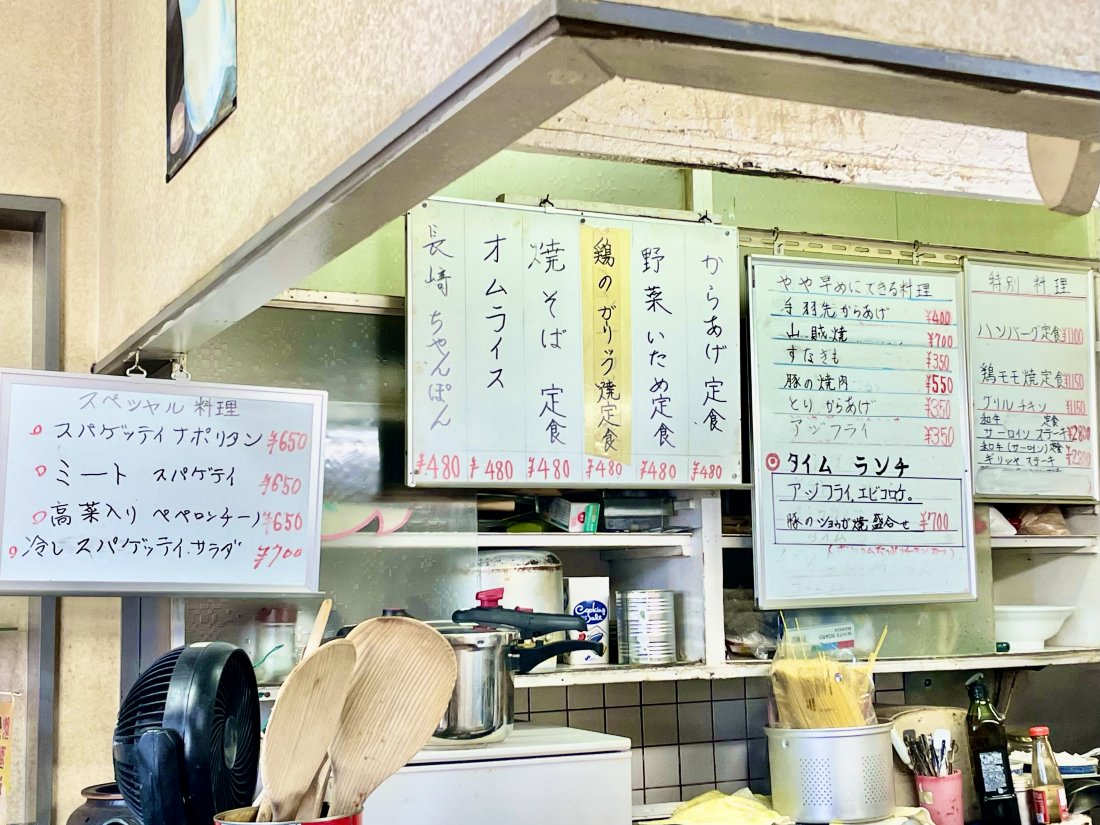 スペッャル 料理
スパゲッティナポリタン ¥650
ミート スパゲティ ¥650
高菜入り ペペロンチーノ ¥650
冷し スパゲッティ.サラダ ¥700
からあげ定食 ¥480
野菜いため定食 ¥480
鶏の ガリック焼定食 ¥480
焼そば 定食 ¥480
オムライス ¥480
長崎ちゃんぽん ¥480
やや早めにできる料理
手羽先からあげ ¥400
山賊焼 ¥700
すなぎも ¥350
豚の焼肉 ¥550
とり からあげ ¥350
アジフライ ¥350
タイム ランチ
アジフライ.エビコロッケ。
豚のショウガ焼 盛合せ ¥700
特別 料理
ハンバーグ定食 ¥1100
鶏モモ焼定食 ¥1150
グリル チキン ¥1150
和牛 定食
サーロイン ステーキ
和牛(サーロイン)定食
Cooking
WHITE BOARD
MARKER